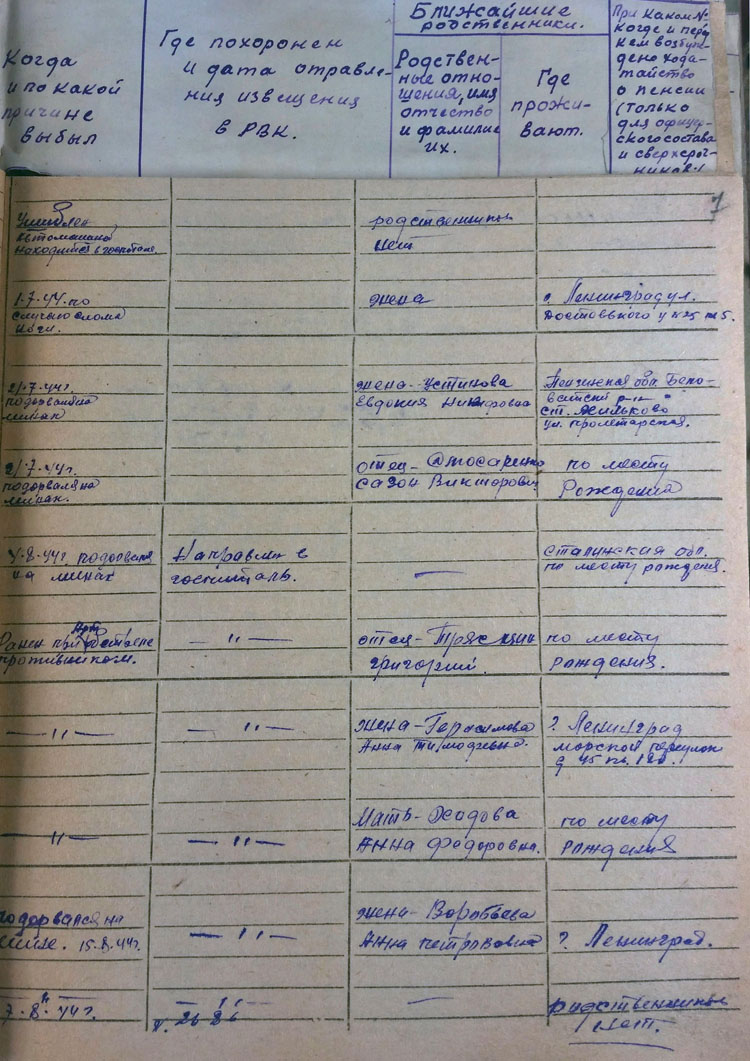 Когда
и по какой
причине
выбыл
Где похоронен
и дата отравле-
ния извещения
в РВК.
Ближайшие
родственники.
Родствен-
ные отно-
шения, имя
отчество
и фамилие
их.
Где
прожи-
вают.
При каком №
когде и перед
кем возбуж-
дено хода-
тайство
о пенсии
(только
для офицер-
ского состава
и сверхсроч-
ников.)
7
автомашина
находился в госпитале.
родственники
нет
1.7.44. по
случаю слома
ноги.
жена
г. Ленинград ул.
Достоевского
21.7.44г.
подорвался на
минах
жена - Устинова
Евдокия
обл. Бело-
ст.
ул. пролетарская.
21.7.44г.
подорвался на
минах.
отец -
Сазон Викторович
по месту
Рождения
4.8.44г. подорвался
на минах
Направлен в
госпиталь.
—
Сталинская обл.
по месту рождения.
Ранен при обстреле
противником.
— " —
отец -
григорий.
по месту
рождения.
— " —
— " —
жена - Герасимова
Анна Тимофеевна.
г. Ленинград
морской переулок
— " —
— " —
Мать -
Анна Федоровна.
по месту
рождения
подорвался на
мине. 15.8.44г.
— " —
жена - Воробьева
Анна петрововна
г. Ленинград.
7.8.44г.
—
родственники
нет.